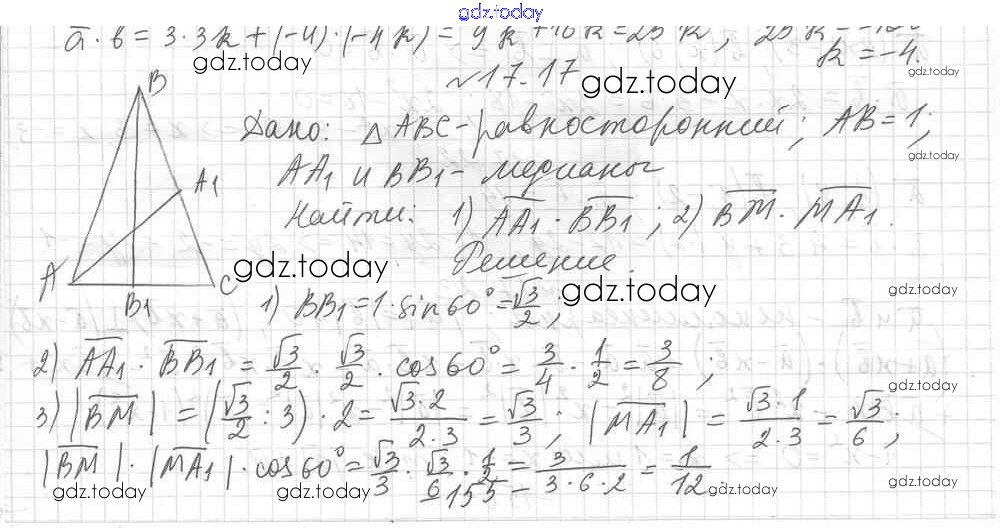 gdz.today
a̅ · b̅ = 3 · 3k + (-4) · (-4k) = 9k + 16k = 25k ; 25k = -100
gdz.today k = -4.
№ 17.17 gdz.today gdz.today
B
Дано: △ABC - равносторонний; AB = 1;
A1 AA1 и BB1 - медианы gdz.today
Найти: 1) A̅A̅1̅ · B̅B̅1̅ ; 2) B̅M̅ · M̅A̅1̅.
A gdz.today Решение.
B1 C gdz.today gdz.today
1) BB1 = 1 · sin 60° = √3/2 ;
2) A̅A̅1̅ · B̅B̅1̅ = √3/2 · √3/2 · cos 60° = 3/4 · 1/2 = 3/8 ;
gdz.today
3) |B̅M̅| = (√3/2 : 3) · 2 = (√3 · 2)/(2 · 3) = √3/3 ; |M̅A̅1̅| = (√3 · 1)/(2 · 3) = √3/6 ;
|B̅M̅| · |M̅A̅1̅| · cos 60° = √3/3 · √3/6 · 1/2 = 3/(3 · 6 · 2) = 1/12.
gdz.today gdz.today gdz.today gdz.today